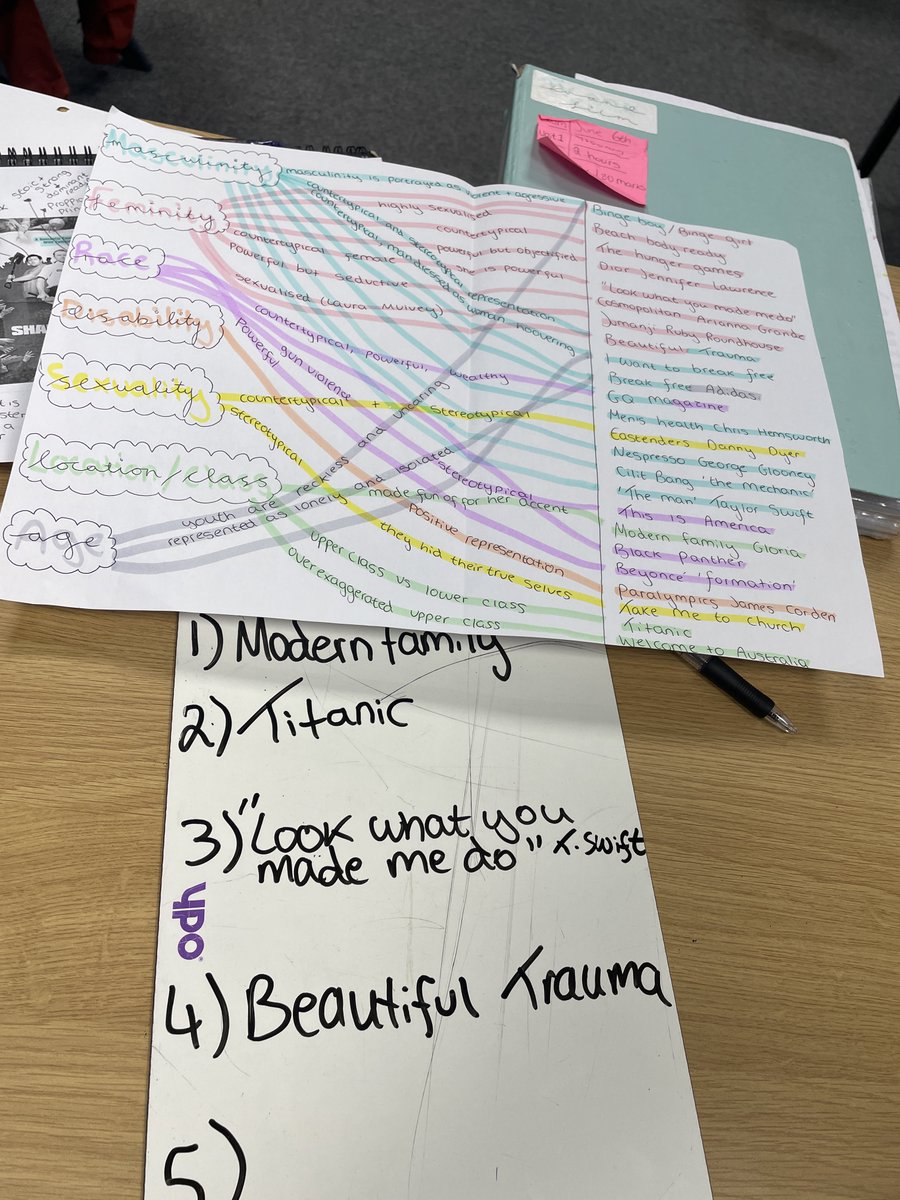 Masculinity
Feminity
Race
Disability
Sexuality
Location/Class
Age
masculinity is portrayed as violent + aggressive
countertypical and stereotypical representation
countertypical, man dressed as woman hoovering
highly sexualised
countertypical
countertypical female
powerful but objectified
Powerful but seductive
one is powerful
sexualised (Laura Mulvey)
countertypical, powerful, wealthy
gun violence
Powerful
countertypical + stereotypical
stereotypical
youth are reckless and uncaring
represented as lonely and isolated
stereotypical
made fun of for her accent
Positive representation
they hid their true selves
upper class vs lower class
over exaggerated upper class
Binge boy / Binge girl
Beach body ready
The hunger games
Dior Jennifer Lawrence
"Look what you made me do"
Cosmopolitan Arianna Grande
Jumanji Ruby Roundhouse
Beautiful Trauma
I want to break free
Break free Adidas
GQ magazine
Men's health Chris Hemsworth
Eastenders Danny Dyer
Nespresso George Glooney
Clit Bang 'the mechanic'
'The man' Taylor Swift
This is America
Modern family Gloria
Black Panther
Beyonce 'formation'
Paralympics James Corden
Take me to church
Titanic
Welcome to Australia
June 6th
2 hours
/80 marks
SHA
1) Modern family
2) Titanic
3) "Look what you
made me do" T.Swift
ypo
4) Beautiful Trauma
5)